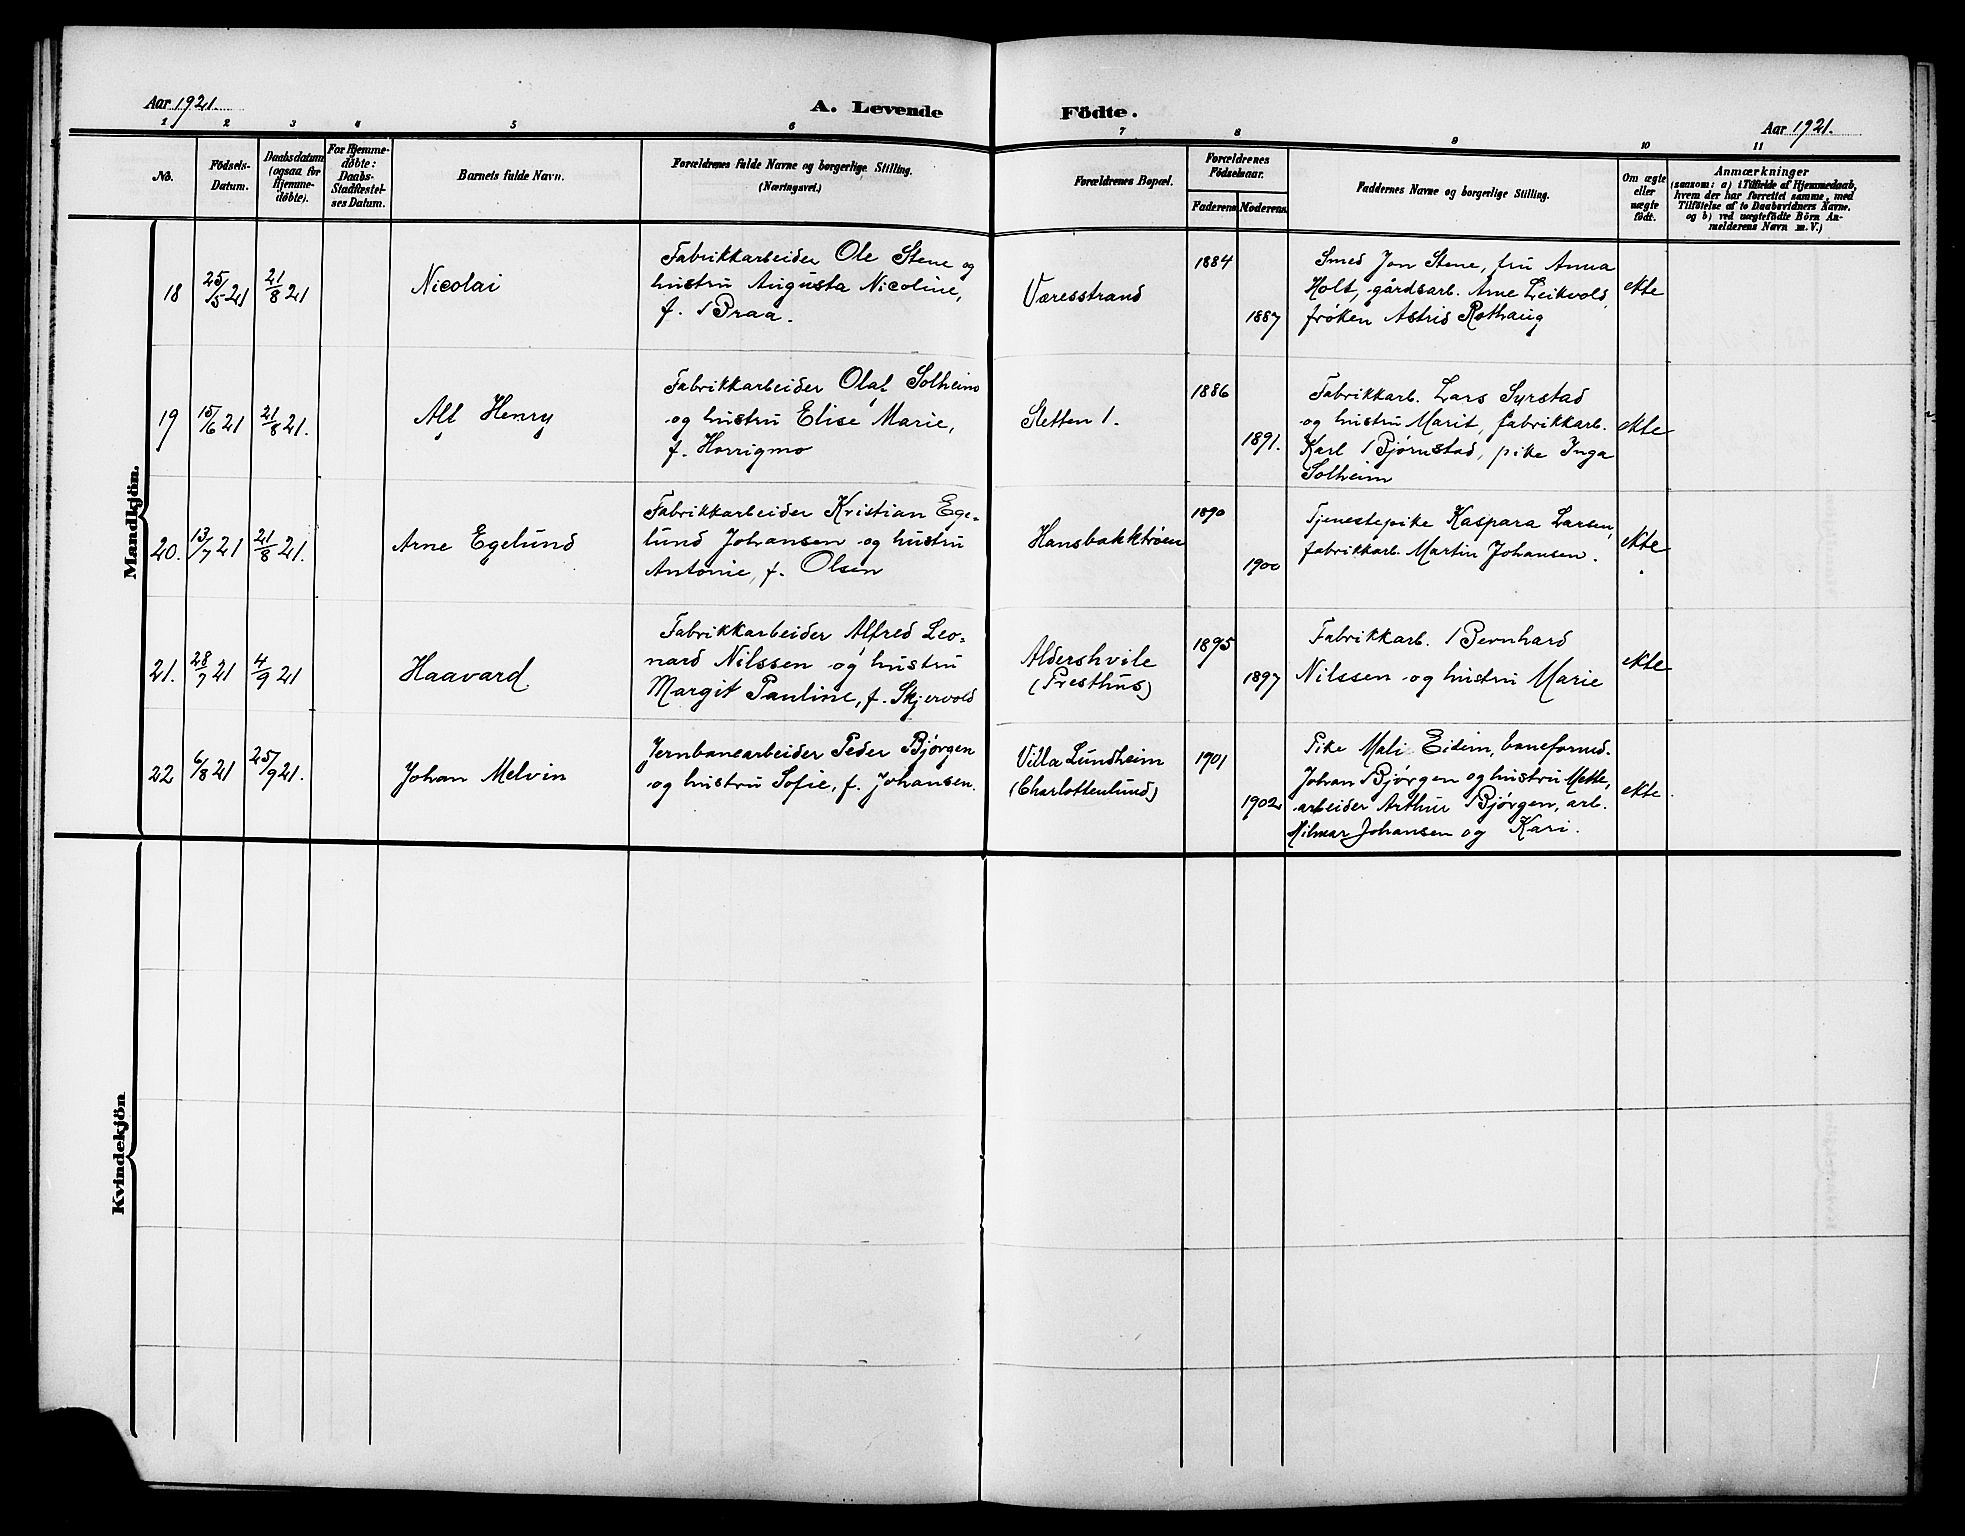 Aar 1921.
A. Levende Födte.
Aar 1921.
1 2 3 4 5 6 7 8 9 10 11
No.
Födsels-
Datum.
Daabsdatum
(ogsaa for
Hjemme-
døbte).
For Hjemme-
døbte:
Daabs-
Stadfæstel-
ses Datum.
Barnets fulde Navn.
Forældrenes fulde Navne og borgerlige Stilling.
(Næringsvei.)
Forældrenes Bopæl.
Forældrenes
Födselsaar.
Faderens Moderens
Faddernes Navne og borgerlige Stilling.
Om ægte
eller
uægte
födt.
Anmærkninger
(saasom: a) i Tilfælde af Hjemmedaab,
hvem der har forrettet samme, med
Tilföielse af to Daabsvidners Navne.
og b) ved uægtefödte Börn An-
melderens Navn m. V.)
Mandkjön.
18
25/5 21
21/8 21
Nicolai
Fabrikkarbeider Ole Stene og
hustru Augusta Nicoline,
f. Braa.
Væresstrand
1884
1887
Smed Jon Stene, fru Anna
Holt, gårdsarb. Arne Leikvold,
frøken Astrid Rothaug
ekte
19
15/6 21
21/8 21.
Alf Henry
Fabrikkarbeider Olaf Solheim
og hustru Elise Marie,
f. Horrigmo
Sletten 1.
1886
1891.
Fabrikkarb. Lars Syrstad
og hustru Marit, fabrikkarb.
Karl Bjørnstad, pike Inga
Solheim
ekte
20.
13/7 21
21/8 21.
Arne Egelund
Fabrikkarbeider Kristian Ege-
lund Johansen og hustru
Antonie, f. Olsen
Hansbakktrøen
1890
1900
Tjenestepike Kaspara Larsen,
fabrikkarb. Martin Johansen.
ekte
21.
28/7 21
4/9 21
Haavard.
Fabrikkarbeider Alfred Leo-
nard Nilssen og hustru
Margit Pauline, f. Skjervold
Aldershvile
(Presthus)
1895
1897
Fabrikkarb. Bernhard
Nilssen og hustru Marie
ekte
22
6/8 21
25/9 21.
Johan Melvin
Jernbanearbeider Peder Bjørgen
og hustru Sofie, f. Johansen.
Villa Lundheim
(Charlottenlund)
1901
1902
Pike Mali Eidem, baneformd.
Johan Bjørgen og hustru Mette,
arbeider Arthur Bjørgen, arb.
Hilmar Johansen og Kari.
ekte
Kvindekjön